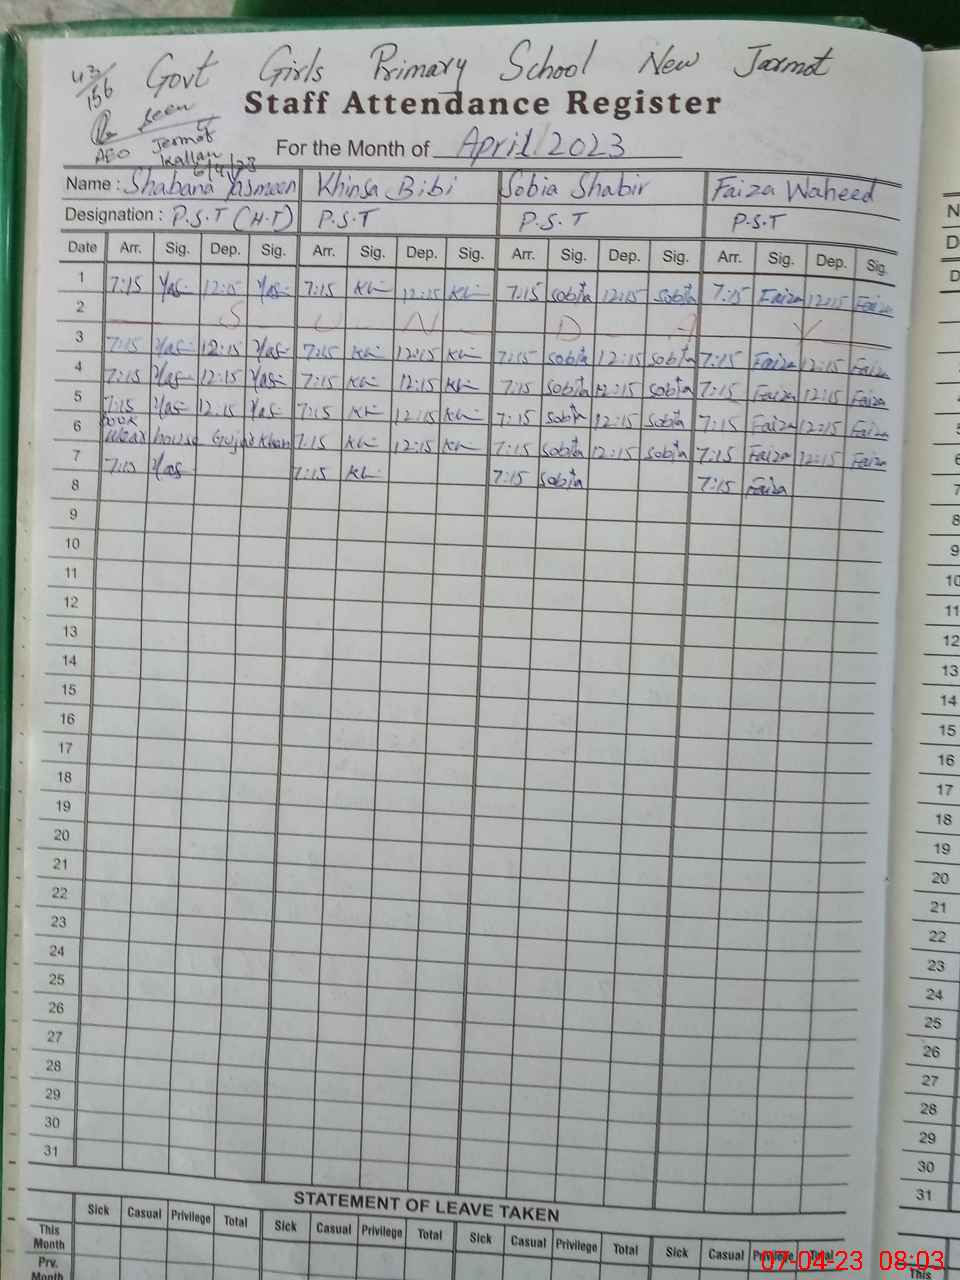 Govt Girls Primary School New Jarmot
43/156
Staff Attendance Register
seen
AEO Jermot
Kallan
6/4/23
For the Month of April 2023
Name : Shabana Yasmeen Khinsa Bibi Sobia Shabir Faiza Waheed
Designation : P.S.T (H.T) P.S.T P.S.T P.S.T
Date Arr. Sig. Dep. Sig. Arr. Sig. Dep. Sig. Arr. Sig. Dep. Sig. Arr. Sig. Dep. Sig.
1 7:15 Yas 12:15 Yas 7:15 Kh 12:15 Kh 7:15 Sobia 12:15 Sobia 7:15 Faiza 12:15 Faiza
2 S U N D A Y
3 7:15 Yas 12:15 Yas 7:15 Kh 12:15 Kh 7:15 Sobia 12:15 Sobia 7:15 Faiza 12:15 Faiza
4 7:15 Yas 12:15 Yas 7:15 Kh 12:15 Kh 7:15 Sobia 12:15 Sobia 7:15 Faiza 12:15 Faiza
5 7:15 Yas 12:15 Yas 7:15 Kh 12:15 Kh 7:15 Sobia 12:15 Sobia 7:15 Faiza 12:15 Faiza
6 house Gujar Khan 7:15 Kh 12:15 Kh 7:15 Sobia 12:15 Sobia 7:15 Faiza 12:15 Faiza
7 7:15 Yas 7:15 Kh 7:15 Sobia 7:15 Faiza
8
9
10
11
12
13
14
15
16
17
18
19
20
21
22
23
24
25
26
27
28
29
30
31
STATEMENT OF LEAVE TAKEN
Sick Casual Privilege Total Sick Casual Privilege Total Sick Casual Privilege Total Sick Casual Privilege Total
This Month
Prv. Month
07-04-23 08:03
N
D
D
5
6
7
8
9
10
11
12
13
14
15
16
17
18
19
20
21
22
23
24
25
26
27
28
29
30
31
This